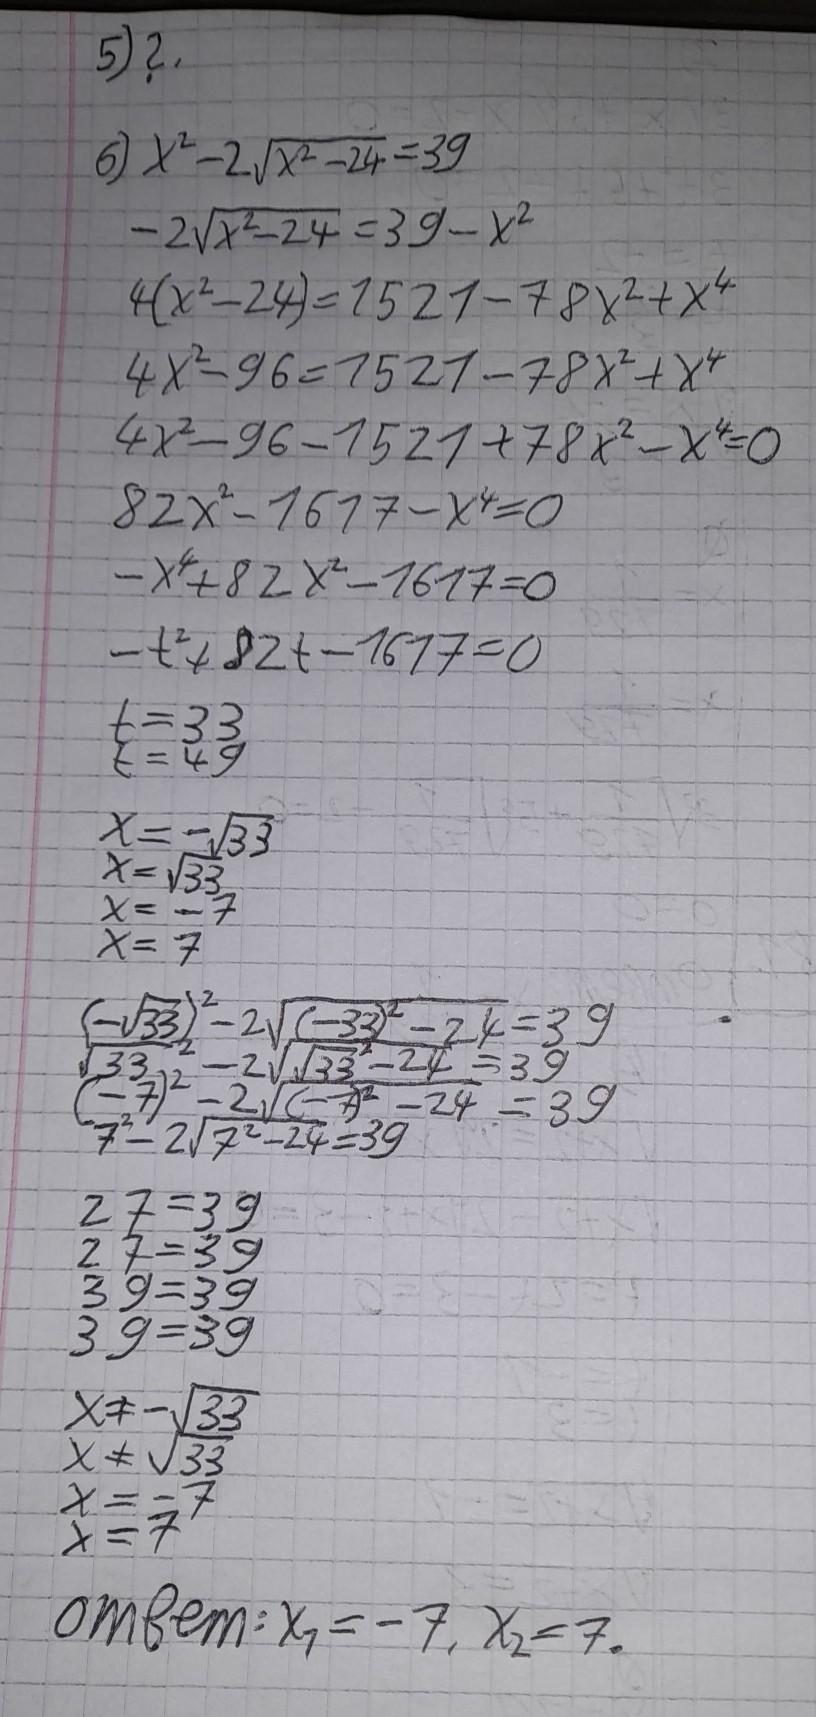 5) ?.
6) x² - 2√(x² - 24) = 39
-2√(x² - 24) = 39 - x²
4(x² - 24) = 1521 - 78x² + x⁴
4x² - 96 = 1521 - 78x² + x⁴
4x² - 96 - 1521 + 78x² - x⁴ = 0
82x² - 1617 - x⁴ = 0
-x⁴ + 82x² - 1617 = 0
-t² + 82t - 1617 = 0
t = 33
t = 49
x = -√33
x = √33
x = -7
x = 7
(-√33)² - 2√((-33)² - 24) = 39
√33² - 2√(√33² - 24) = 39
(-7)² - 2√((-7)² - 24) = 39
7² - 2√(7² - 24) = 39
27 = 39
27 = 39
39 = 39
39 = 39
x ≠ -√33
x ≠ √33
x = -7
x = 7
ответ: x₁ = -7, x₂ = 7.